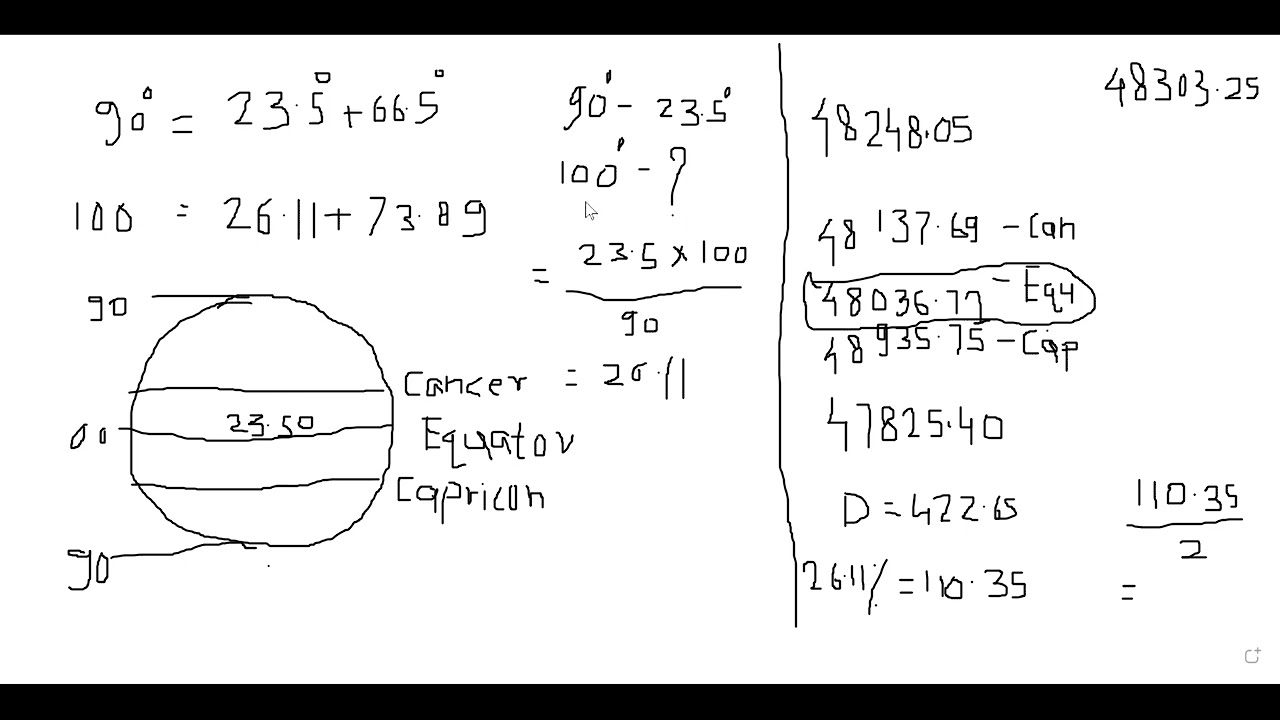 90° = 23.5° + 66.5°
100 = 26.11 + 73.89
90
Cancer
00
23.50
Equator
Capricon
90
90° - 23.5°
100° - ?
= 23.5 x 100
90
= 26.11
48303.25
48248.05
48137.69 - Can
48036.77 - Equ
48935.75 - Cap
47825.40
D = 422.65
26.11% = 110.35
110.35
2
=